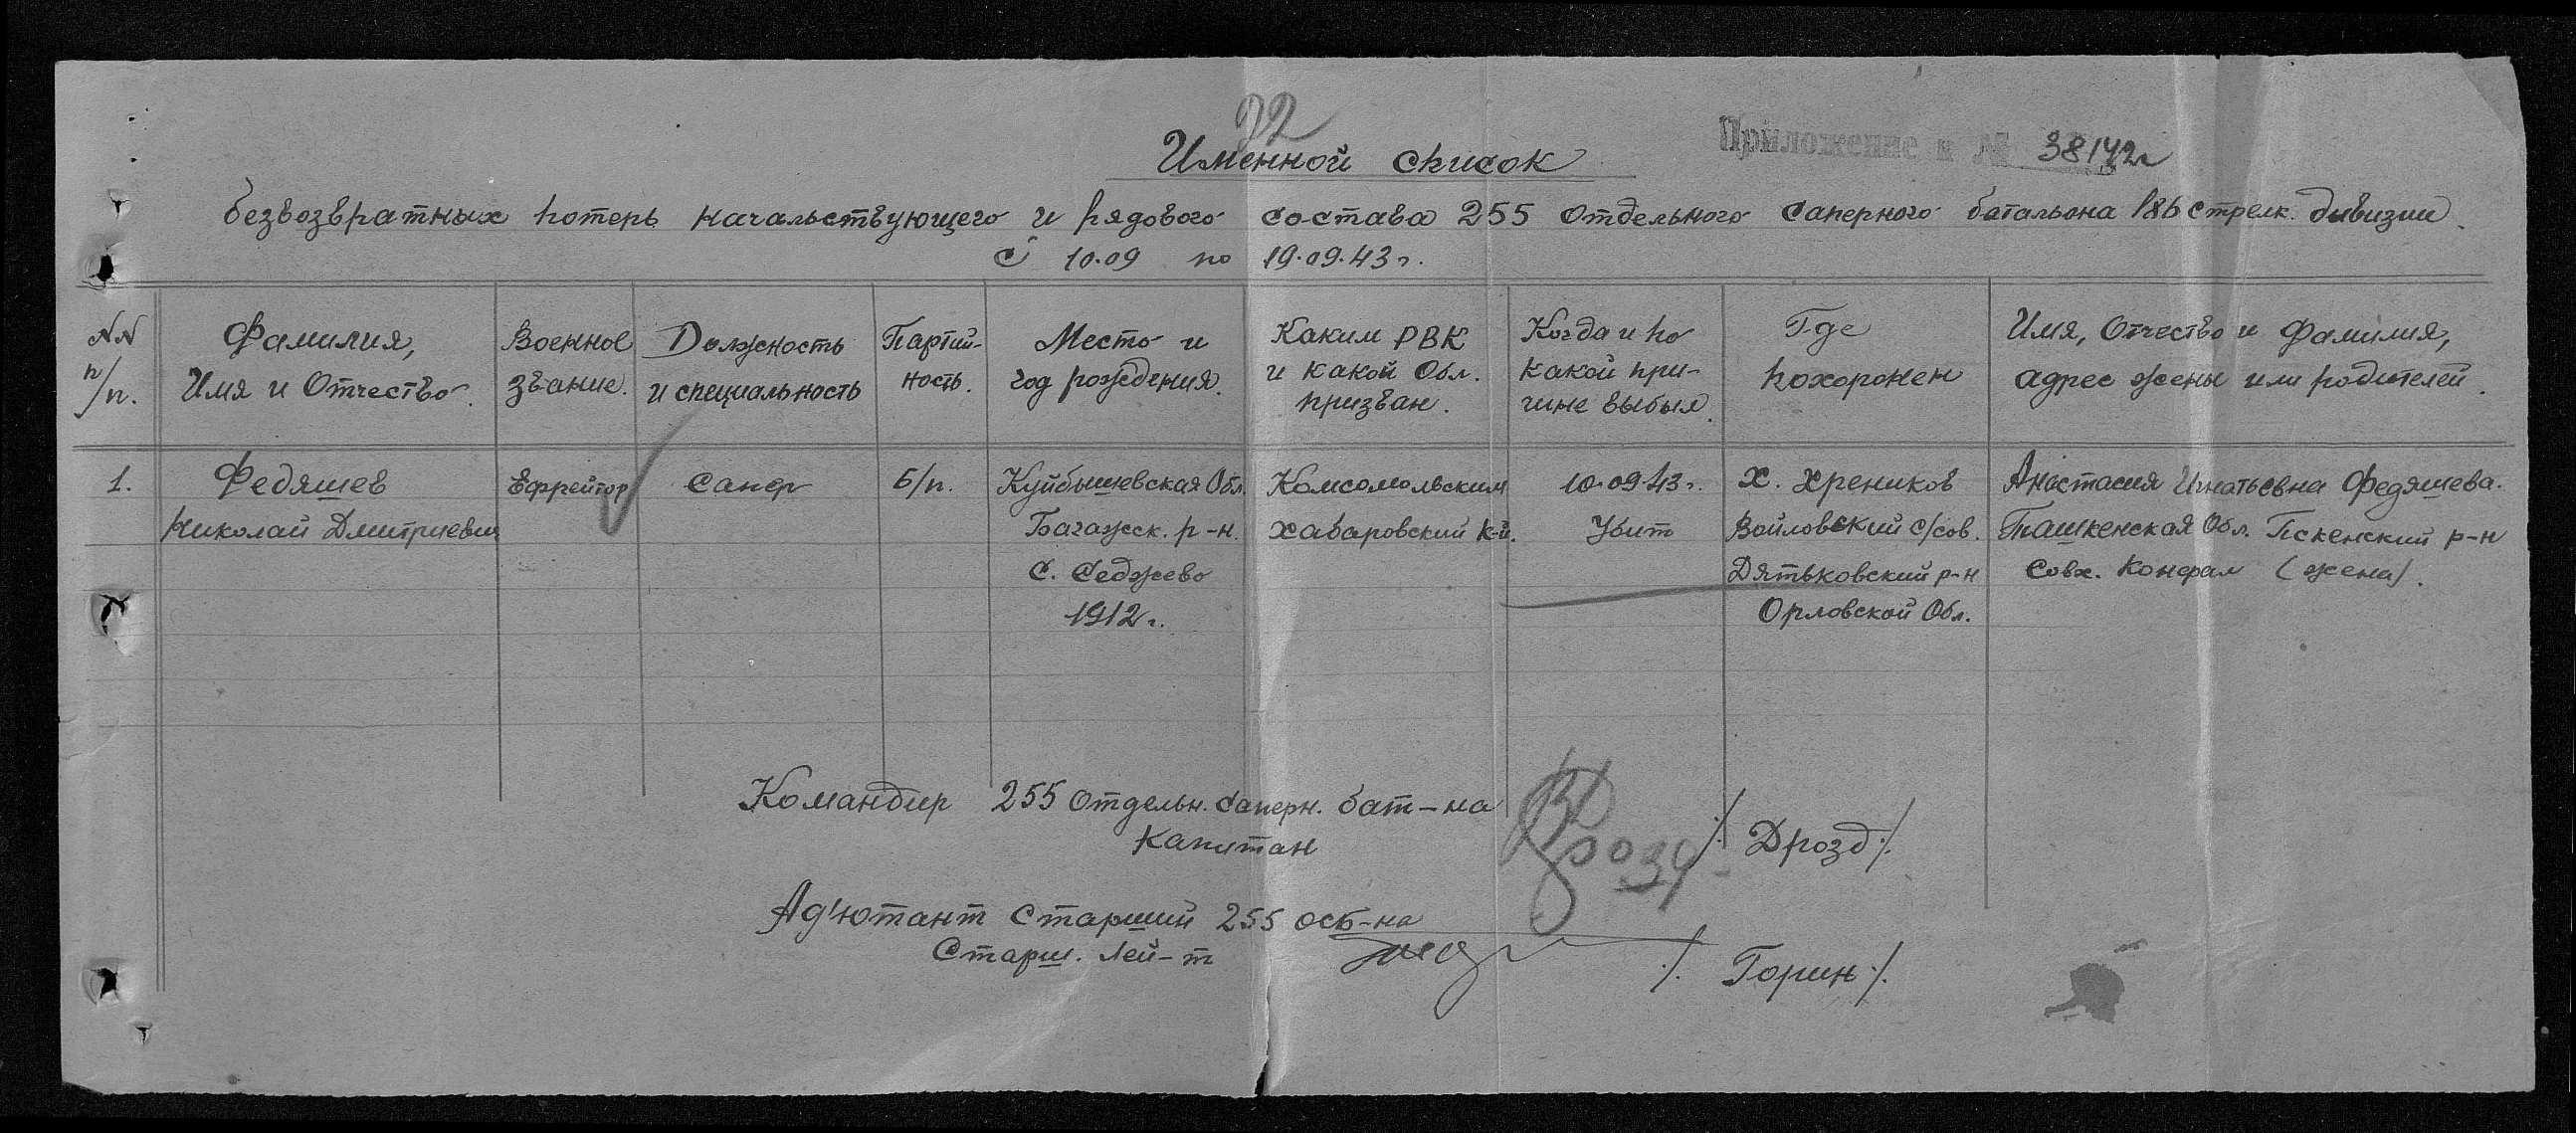 32
Именной список
Приложение к № 38142с
безвозвратных потерь начальствующего и рядового состава 255 отдельного саперного батальона 186 стрелк. дивизии
с 10.09 по 19.09.43 г.
NN п/п.
Фамилия, Имя и Отчество.
Военное звание.
Должность и специальность
Партийность.
Место и год рождения.
Каким РВК и какой Обл. призван.
Когда и по какой причине выбыл.
Где похоронен
Имя, Отчество и Фамилия, адрес жены или родителей.
1. Федяшев Ефрейтор Сапер Б/п. Куйбышевская Обл. Комсомольским 10.09.43 г. Х. Хреников Анастасия Игнатьевна Федяшева.
Николай Дмитриевич Багажск. р-н. Хабаровский к-й. Убит Войловский с/сов. Ташкенская Обл. Пскенский р-н
с. Седжево Дятьковский р-н Совх. Конерал (жена).
1912 г. Орловской Обл.
Командир 255 Отдельн. саперн. бат-на
Капитан Дрозд /Дрозд/.
Ад'ютант Старший 255 осб-на
Старш. Лей-т /Горин/.